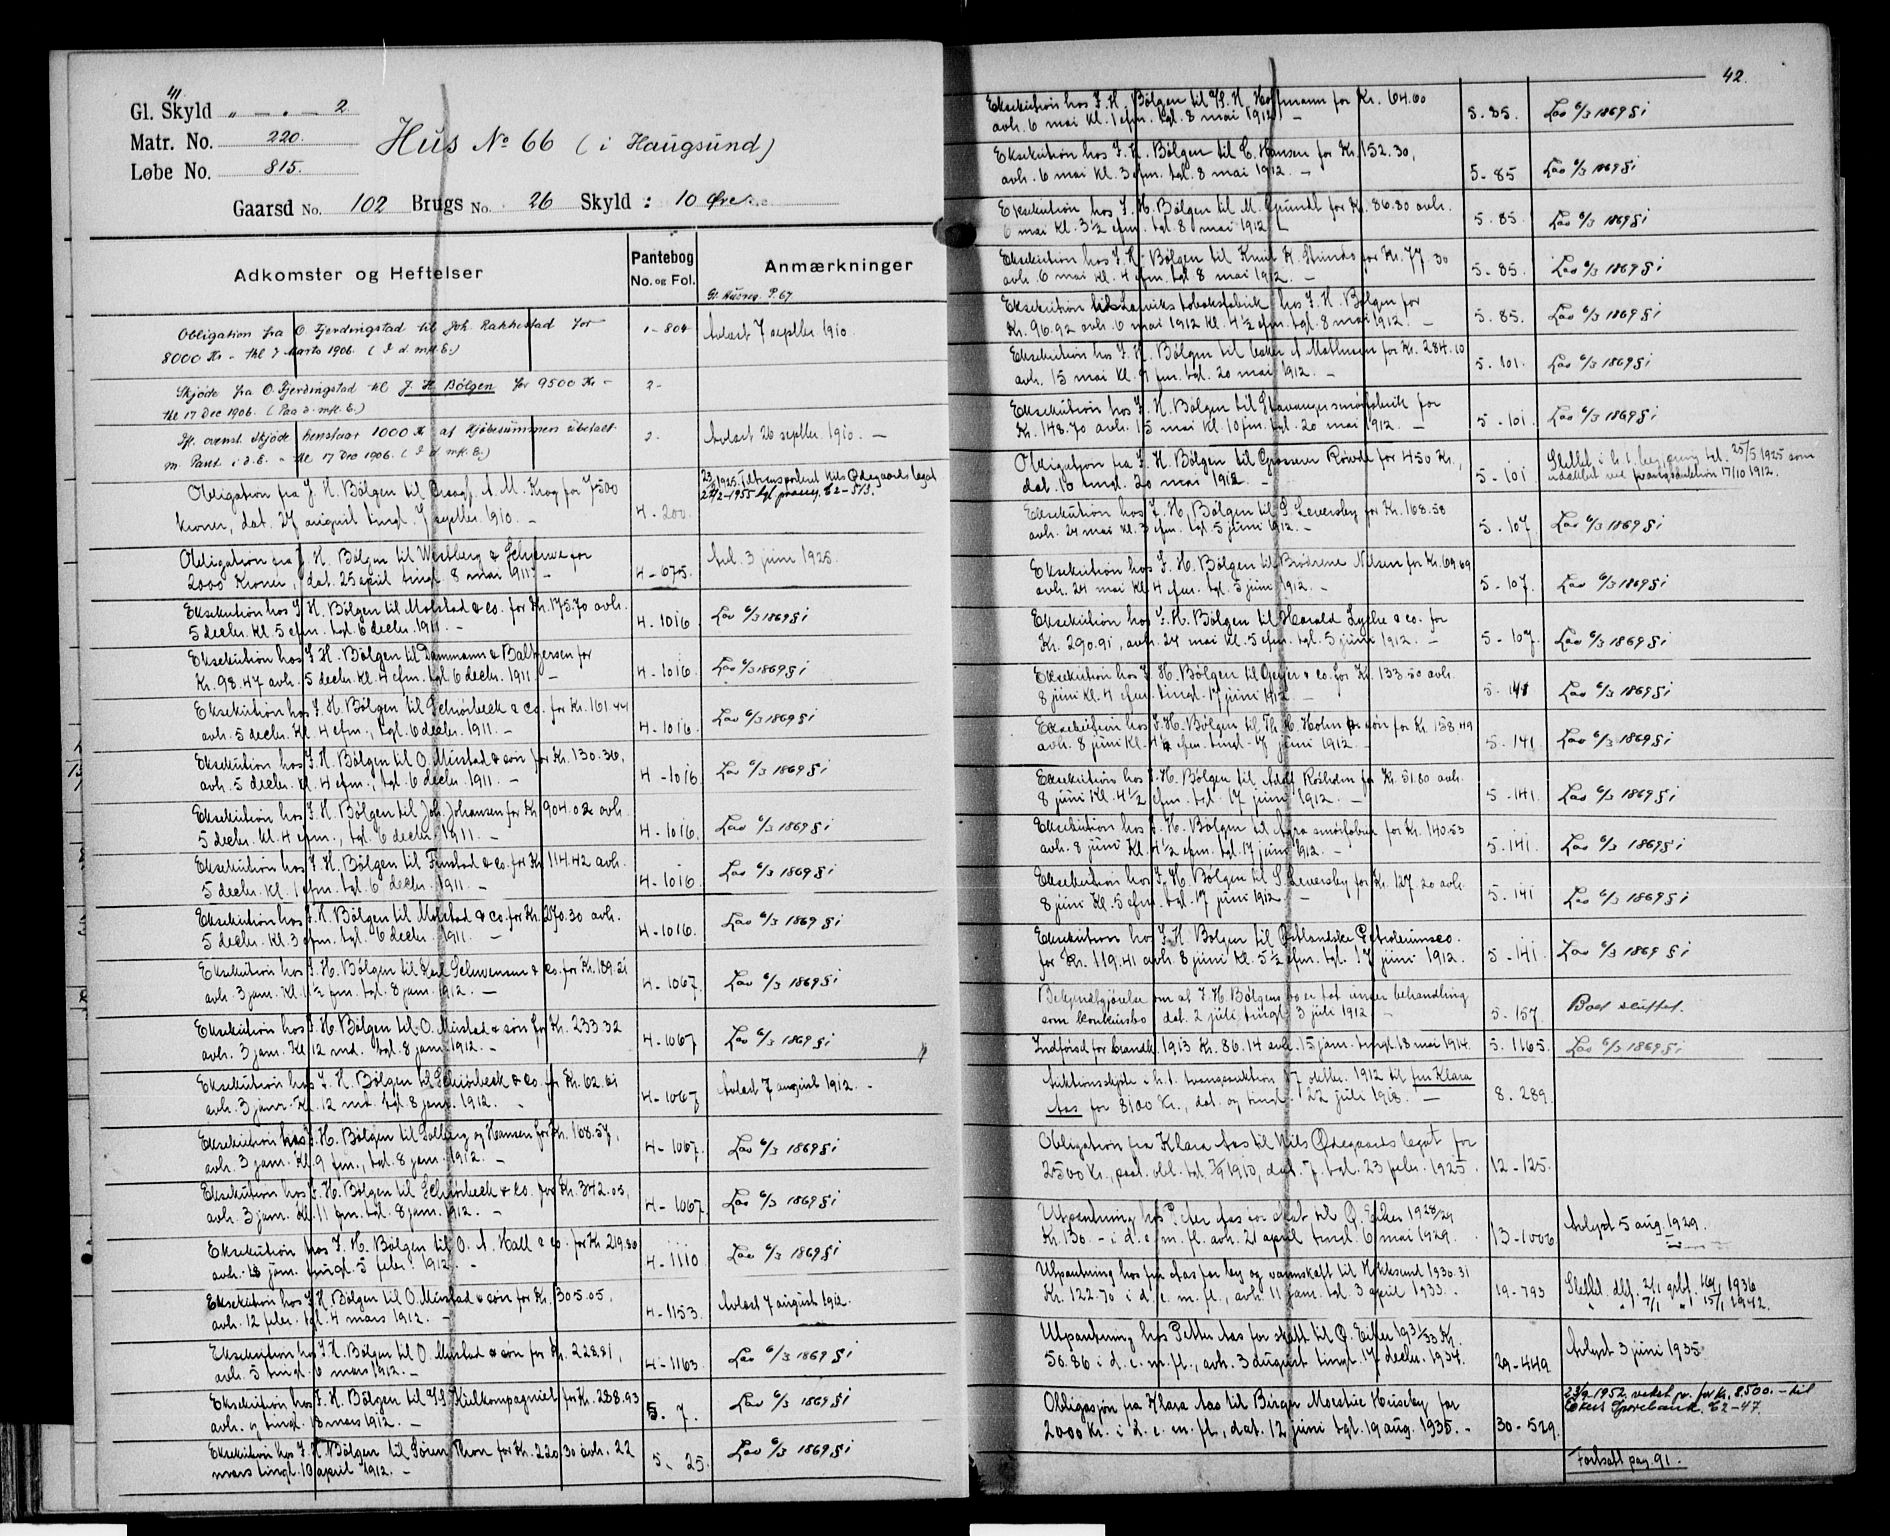 41
Gl. Skyld „ — „ — 2
Matr. No. 220.
Løbe No. 815.
Hus No 66 (i Haugsund)
Gaarsd No. 102 Brugs No. 26 Skyld : 10 Øre
Adkomster og Heftelser
Pantebog
No. og Fol.
Anmærkninger
Gl. Husreg. P. 67
Obligation fra O Fjerdingstad til Joh. Rakkestad for 1-804 Avlæst 7 septbr 1910.
8000 Kr - thl 7 Marts 1906. (I d. mfl. E.)
Skjøde fra O. Fjerdingstad til J. H. Bølgen for 9500 Kr - 2-
thl 17 Dec 1906. (Paa d. mfl. E.)
Ifl. ovenst. Skjøde henstaar 1000 Kr af Kjøbesummen ubetalt 2. Avlæst 26 septbr. 1910. —
m. Pant i d. E. - thl 17 Dec 1906. (I d. mfl. E.)
Obligation fra J. H. Bølgen til A. M. Krog for 7500 4-200.
kroner, dat. 27 august tingl. 7 septbr. 1910. —
Obligation fra J. H. Bølgen til Westberg & for 4-675. Avl. 3 juni 1925.
2000 Kroner, dat. 25 april tingl. 8 mai 1911. —
Eksekution hos J. H. Bølgen til Molstad & co. for Kr. 175.70 avh. 4-1016. Lov 6/3 1869 § 1
5 decbr. kl. 5 efm. tgl. 6 decbr. 1911. —
Eksekution hos J. H. Bølgen til Dammann & Balthersen for 4-1016. Lov 6/3 1869 § 1
Kr. 98.47 avh. 5 decbr. kl. 4 efm. tgl 6 decbr. 1911. —
Eksekution hos J. H. Bølgen til Schiørbeck & co. for Kr. 161.44 4-1016. Lov 6/3 1869 § 1
avh. 5 decbr. kl. 4 efm., tgl. 6 decbr. 1911. —
Eksekution hos J. H. Bølgen til O. Mustad & søn for Kr. 130.36, 4-1016 Lov 6/3 1869 § 1
avh. 5 decbr. kl. 4 efm., tgl. 6 decbr. 1911. —
Eksekution hos J. H. Bølgen til Joh. Johansen for Kr 904.02 avh. 4-1016. Lov 6/3 1869 § 1
5 decbr. kl. 4 efm., tgl. 6 decbr. 1911. —
Eksekution hos J. H. Bølgen til Finstad & co. for Kr. 114.42 avh. 4-1016. Lov 6/3 1869 § 1
5 decbr. kl. 1 efm. tgl. 6 decbr. 1911 —
Eksekution hos J. H. Bølgen til Molstad & co. for Kr. 270.30 avh. 4-1016. Lov 6/3 1869 § 1
5 decbr. kl. 3 efm. tgl. 6 decbr. 1911. —
Eksekution hos J. H. Bølgen til Karl & Co. for Kr. 189.21 4-1067. Lov 6/3 1869 § 1
avh. 3 jan. kl. 11½ fm. tgl. 8 jan. 1912. —
Eksekution hos J. H. Bølgen til O. Mustad & søn for Kr. 233.32 4-1067 Lov 6/3 1869 § 1
avh. 3 jan. Kl 12 md. tgl 8 jan. 1912. —
Eksekution hos J. H. Bølgen til Schiørbeck & co. for Kr. 62.61 4-1067 Avlæst 7 august 1912. -
avh. 3 janr. Kl. 12 md. tgl 8 jan. 1912. -
Eksekution hos J. H. Bølgen til Solberg og Hansen for Kr. 108.57, 4-1067. Lov 6/3 1869 § 1
avh. 3 jan. Kl. 9 fm., tgl. 8 jan. 1912. —
Eksekution hos J. H. Bølgen til Schiørbeck & Co. for Kr. 342.03, 4-1067. Lov 6/3 1869 § 1
avh. 3 jan. Kl. 11 fm. tgl. 8 jan. 1912. -
Eksekution hos J. H. Bølgen til O. A. Hall & Co. for Kr 219.80 4-1110 Lov 6/3 1869 § 1
avh. 18 jan. tingl. 5 febr. 1912. -
Eksekution hos J. H. Bølgen til O. Mustad & søn for Kr. 305.05, 4-1153. Avlæst 7 august 1912.
avh. 12 febr. tgl. 4 mars 1912. -
Eksekution hos J. H. Bølgen til O. Mustad & søn for Kr. 228.81, 4-1163. Lov 6/3 1869 § 1
avh. 5 tingl. 6 mars 1912. —
Eksekution hos J. H. Bølgen til Kulkompagniet for Kr. 288.93 5. 7. Lov 6/3 1869 § 1
avh. og tingl. 18 mars 1912. —
Eksekution hos J. H. Bølgen til Søren Thon for Kr. 220.30 avh. 22 5-25. Lov 6/3 1869 § 1
mars tingl. 10 april 1912. —
42.
Eksekution hos J. H. Bølgen til H. Hoffmann for Kr. 64.60 5-85. Lov 6/3 1869 § 1
avh. 6 mai kl. 1 efm. tgl. 8 mai 1912. —
Eksekution hos J. H. Bølgen til C. Hansen for Kr. 152.30, 5-85 Lov 6/3 1869 § 1
avh. 6 mai kl. 3 efm. tgl. 8 mai 1912. —
Eksekution hos J. H. Bølgen til M. for Kr. 86.80 avh. 5-85. Lov 6/3 1869 § 1
6 mai kl. 3½ efm. tgl. 8 mai 1912.
Eksekution hos J. H. Bølgen til Knut H. for Kr. 77.30 5-85. Lov 6/3 1869 § 1
avh. 6 mai kl. 4 efm. tgl 8 mai 1912. —
Eksekution til Larviks tobaksfabrik hos J. H. Bølgen for 5-85. Lov 6/3 1869 § 1
Kr. 96.92 avh. 6 mai 1912 kl. 4½ efm. tgl. 8 mai 1912. —
Eksekution hos J. H. Bølgen til baker A Mathisen for Kr. 284.10 5-101. Lov 6/3 1869 § 1
avh. 15 mai kl. 9 fm. tgl. 20 mai 1912. —
Eksekution hos J. H. Bølgen til Stavanger smørfabrik for 5-101 Lov 6/3 1869 § 1
Kr. 148.70 avh. 15 mai kl. 10 fm. tgl. 20 mai 1912. —
Obligation fra J. H. Bølgen til Grosserer for 450 Kr., 5-101 Slettet i h. t. begjæring tgl. 25/5 1925 som
dat. 18 tingl. 20 mai 1912. — udslettet ved tvangsauktion 17/10 1912.
Eksekution hos J. H. Bølgen til S. Leversby for Kr. 168.58 5-107 Lov 6/3 1869 § 1
avh. 24 mai kl. 3 efm. tgl 5 juni 1912. —
Eksekution hos J. H. Bølgen til Brødrene Nilsen for Kr. 69.69 5-107. Lov 6/3 1869 § 1
avh. 24 mai kl. 4 efm. tgl. 5 juni 1912. —
Eksekution hos J. H. Bølgen til Harald Lyche & co. for 5-107. Lov 6/3 1869 § 1
Kr. 290.91, avh. 24 mai kl. 5 efm. tgl. 5 juni 1912. —
Eksekution hos J. H. Bølgen til Geijer & co. for Kr. 133.50 avh. 5-141 Lov 6/3 1869 § 1
8 juni kl. 4 efm. tingl. 17 juni 1912 —
Eksekution hos J. H. Bølgen til Th. C. Holm & søn for Kr. 158.49 5-141. Lov 6/3 1869 § 1
avh. 8 juni kl. 4 efm. tingl. 17 juni 1912. —
Eksekution hos J. H. Bølgen til Adolf Rosholm for Kr. 51.80 avh. 5-141. Lov 6/3 1869 § 1
8 juni kl. 4½ efm. tgl. 17 juni 1912. —
Eksekution hos J. H. Bølgen til Agra smørfabrik for Kr. 140.53 5-141. Lov 6/3 1869 § 1
avh. 8 juni kl. 4½ efm. tgl. 17 juni 1912. —
Eksekution hos J. H. Bølgen til S. Leversby for Kr. 127.20 avh. 5-141 Lov 6/3 1869 § 1
8 juni Kl. 5 efm. tgl. 17 juni 1912. —
Eksekution hos J. H. Bølgen til Østlandske Petroleumsco. 5-141. Lov 6/3 1869 § 1
for Kr. 119.41 avh. 8 juni kl. 5½ efm. tgl. 17 juni 1912.
Bekjendtgjørelse om at J. H. Bølgens bo er tat under behandling 5-157 Boet sluttet.
som konkursbo dat. 2 juli tingl. 3 juli 1912 —
Indførsel for brandk. 1913 Kr. 86.14 avh. 15 jan. tingl. 18 mai 1914. 5. 1165. Lov 6/3 1869 § 1
Auktionsskjøte i h. t. tvangsauktion 17 oktbr. 1912 til fru Klara 8. 289.
Aas for 8100 Kr., dat. og tingl. 22 juli 1918. —
Obligation fra Klara Aas til Nils Ødegaards legat for 12-125.
2500 Kr., paat. obl. tgl. 7/9 1910, dat. 7 tgl. 23 febr. 1925.
Utpantning hos Peter Aas for skat til Ø. Eiker 1928/29 13-1006 Avlyst 5 aug. 1929.
Kr. 130.- i d. e. m. fl. avh. 21 april tingl. 6 mai 1929.
Utpantning hos fru Aas for by og vannskatt til Hokksund 1930.31 19-793
Kr. 122.70 i d. e. m. fl., avh. 11 jan. tgl. 3 april 1933.
Utpantning hos Petter Aas for skatt til Ø. Eiker 1931/33 Kr. 29-449 Avlyst 3 juni 1935
50.86 i d. e. m. fl., avh. 3 august tingl. 17 decbr. 1934.
Obligasjon fra Klara Aas til Birger Morstue Huseby for 30-529. 23/9 1952 vekst pr. for kr. 8500.- til
2000 Kr. i d. e. m. fl., dat. 12 juni tgl. 19 aug. 1935. - Eikers Sparebank. C2-47.
Fortsatt pag. 91.